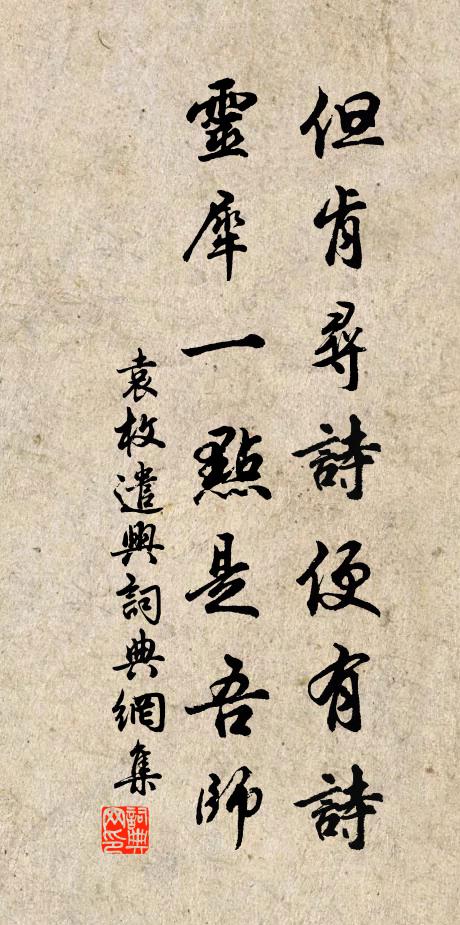 但肯尋詩便有詩
靈犀一點是吾師
袁枚遣興詞典網集
詞典
网印